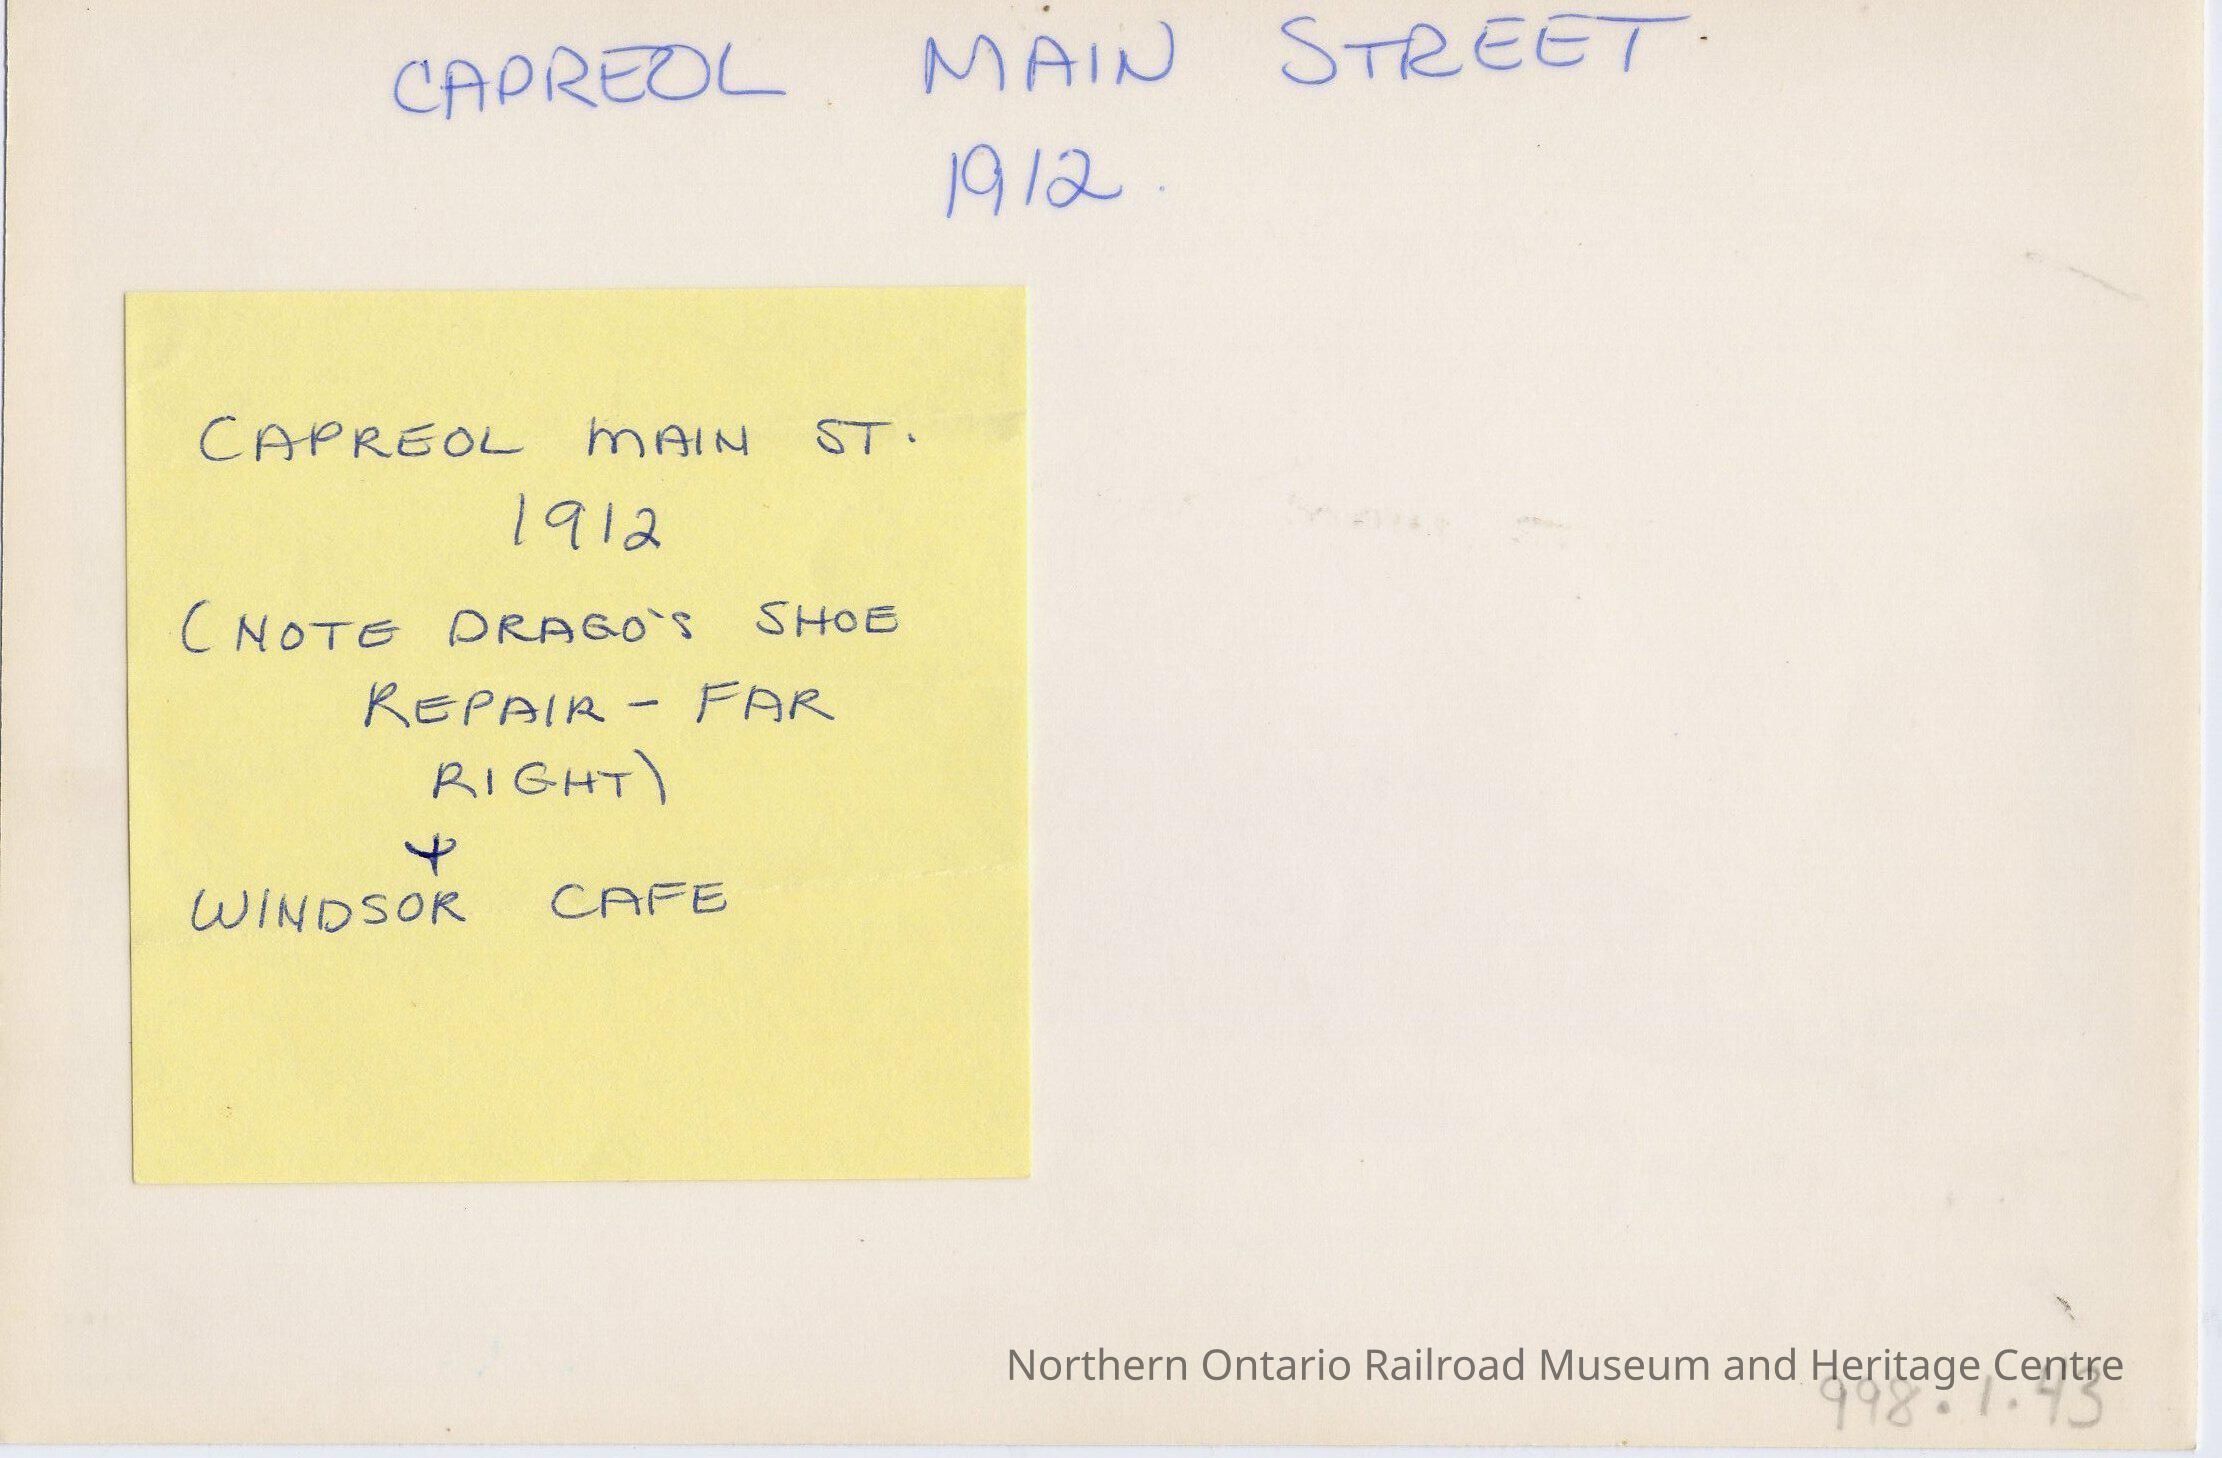 CAPREOL MAIN STREET.
1912.
CAPREOL MAIN ST.
1912
(NOTE DRAGO'S SHOE
REPAIR - FAR
RIGHT)
+
WINDSOR CAFE
Northern Ontario Railroad Museum and Heritage Centre
998.1.43